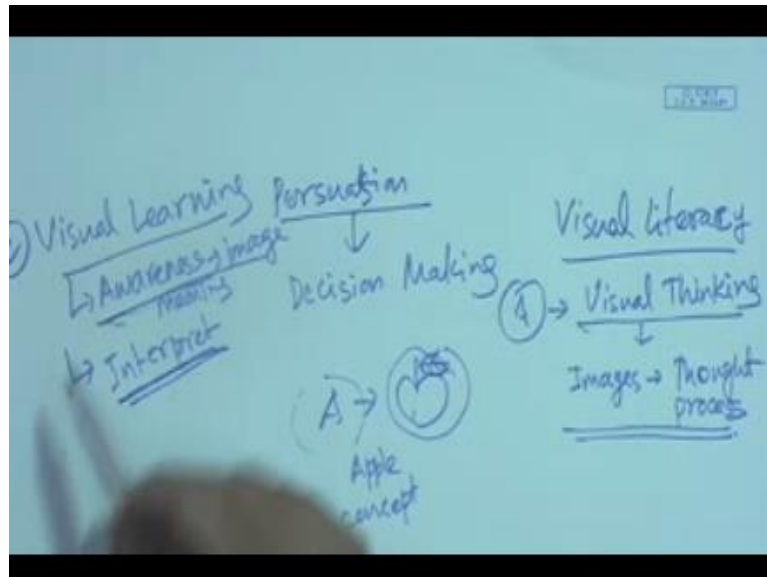 Visual Learning
↳ Awareness → image
meaning
↳ Interpret
Persuation
↓
Decision Making
A →
Apple
concept
Visual Literacy
① → Visual Thinking
↓
Images → Thought
process